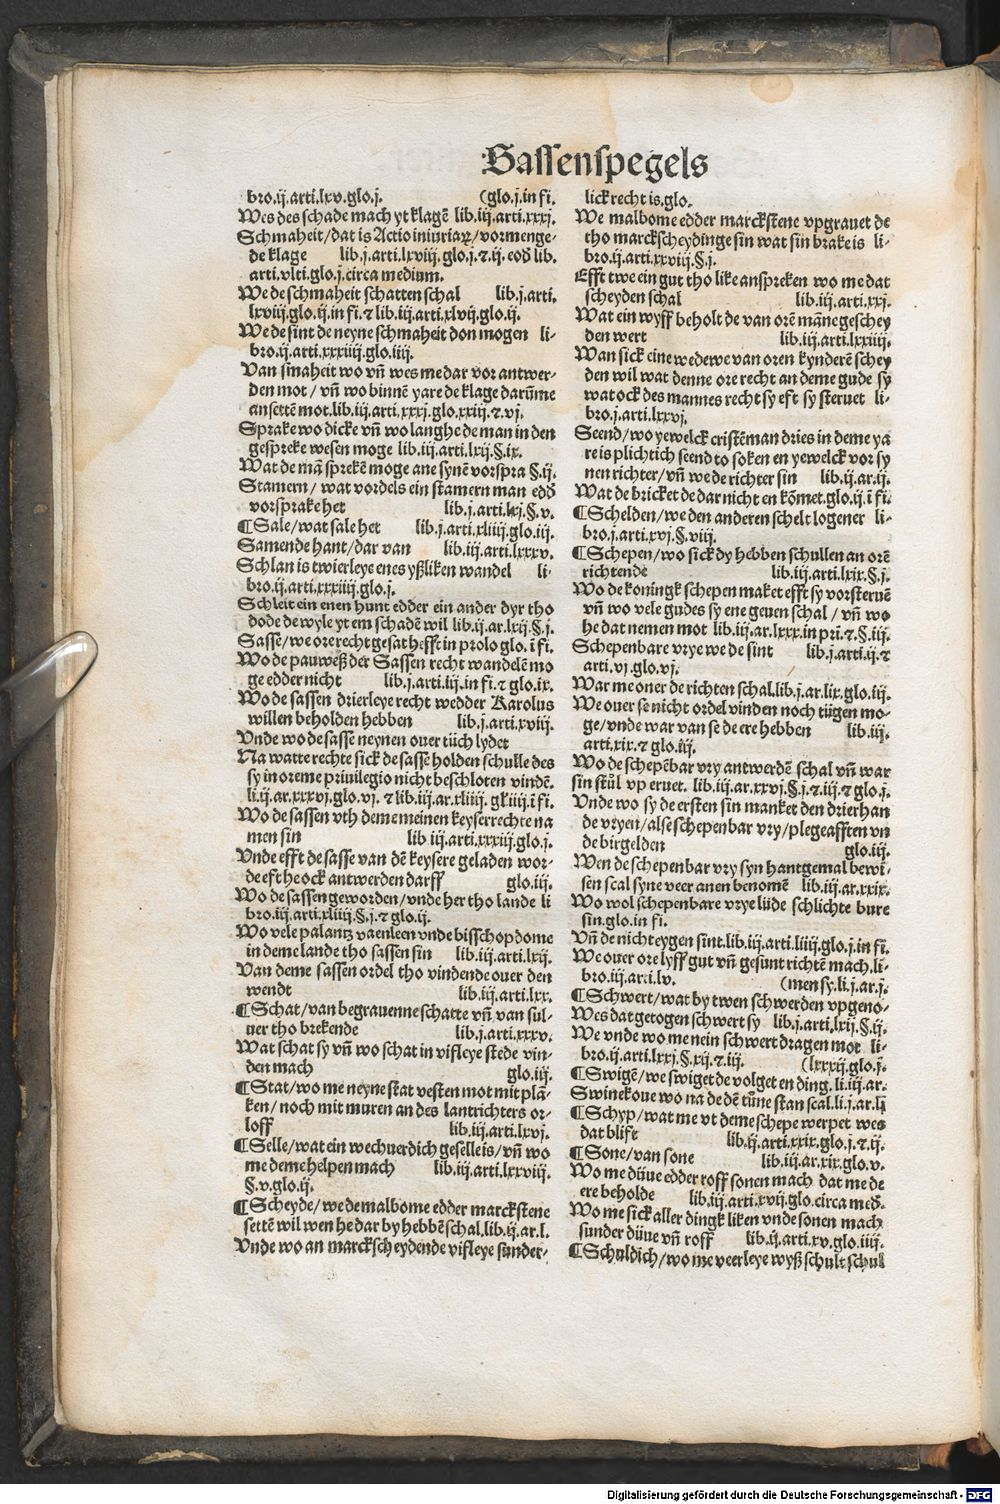 Sassenspegels
bro.ij.arti.lxv.glo.j. (glo.j.in fi.
Wes des schade mach yt klagẽ lib.iij.arti.xxxj.
Schmaheit/dat is Actio iniuriaꝝ/vormenge-
de klage lib.j.arti.lxviij.glo.j.⁊.ij. eoð lib.
arti.vlti.glo.j.circa medium.
We de schmaheit schatten schal lib.j.arti.
lxviij.glo.ij.in fi.⁊ lib.iij.arti.xlvij.glo.ij.
We de sint de neyne schmaheit don mogen li-
bro.ij.arti.xxxiiij.glo.iiij.
Van smaheit wo vñ wes me dar vor antwer-
den mot/vñ wo binnẽ yare de klage darũme
ansettẽ mot.lib.iij.arti.xxxj.glo.xxiij.⁊.vj.
Sprake wo dicke vñ wo langhe de man in den
gespreke wesen moge lib.iij.arti.lxij.§.ix.
Wat de mã sprekẽ moge ane synẽ vorspra §.ij.
Stamern/wat vordels ein stamern man eoð
vorsprake het lib.j.arti.lxj.§.v.
¶Sale/wat sale het lib.j.arti.xliiij.glo.iij.
Samende hant/dar van lib.iij.arti.lxxxv.
Schlan is twierleye enes yßliken wandel li-
bro.ij.arti.xxxiiij.glo.j.
Schleit ein enen hunt edder ein ander dyr tho
dode de wyle yt em schadẽ wil lib.ij.ar.lxij.§.j.
Sasse/we ore recht gesat hefft in prolo glo.ĩ fi.
Wo de pauweß der Sassen recht wandelẽ mo
ge edder nicht lib.j.arti.iij.in fi.⁊ glo.ix.
Wo de sassen drierleye recht wedder Karolus
willen beholden hebben lib.j.arti.xviij.
Vnde wo de sasse neynen ouer tüch lydet
Na watte rechte sick de sassẽ holden schulle des
sy in oreme priuilegio nicht beschloten vindẽ.
li.ij.ar.xxxvj.glo.vj.⁊ lib.iij.ar.xliiij.gl.iiij.ĩ fi.
Wo de sassen vth deme meinen keyserrechte na
men sin lib iij.arti.xxxiij.glo.j.
Vnde efft de sasse van dẽ keysere geladen wor-
de eft he ock antwerden darff glo.iij.
Wo de sassen geworden/vnde her tho lande li
bro.iij.arti.xliiij.§.j.⁊ glo.ij.
Wo vele palantz vaenleen vnde bisschopdome
in deme lande tho sassen sin lib.iij.arti.lxij.
Van deme sassen ordel tho vindende ouer den
wendt lib.iij.arti.lxx.
¶Schat/van begrauenne schatte vñ van sul-
uer tho brekende lib.j.arti.xxxv.
Wat schat sy vñ wo schat in vifleye stede vin-
den mach glo.iij.
¶Stat/wo me neyne stat vesten mot mit plã-
ken/noch mit muren an des lantrichters or-
loff lib.iij.arti.lxvj.
¶Selle/wat ein wechuerdich geselle is/vñ wo
me deme helpen mach lib.iij.arti.lxxviij.
§.v.glo.ij.
¶Scheyde/we de malbome edder marckstene
settẽ wil wen he dar by hebbẽ schal.lib.ij.ar.l.
Vnde wo an marckscheydende vifleye sunder-
lick recht is.glo.
We malbome edder marckstene vpgrauet de
tho marckscheydinge sin wat sin brake is li-
bro.ij.arti.xxviij.§.j.
Efft twe ein gut tho like anspreken wo me dat
scheyden schal lib.iij.arti.xxj.
Wat ein wyff beholt de van orẽ mãne geschey
den wert lib.iij.arti.lxxiiij.
Wan sick eine wedewe van oren kynderẽ schey
den wil wat denne ore recht an deme gude sy
wat ock des mannes recht sy eft sy steruet li-
bro.j.arti.lxxvj.
Seend/wo yewelck cristẽman dries in deme ya
re is plichtich seend to soken en yewelck vor sy
nen richter/vñ we de richter sin lib.ij.ar.ij.
Wat de bricket de dar nicht en kõmet.glo.ij.ĩ fi.
¶Schelden/we den anderen schelt logener li-
bro.j.arti.xvj.§.viij.
¶Schepen/wo sick dy hebben schullen an orẽ
richtende lib.iij.arti.lxix.§.j.
Wo de koningk schepen maket efft sy vorsteruẽ
vñ wo vele gudes sy ene geuen schal/vñ wo
he dat nemen mot lib.iij.ar.lxxx.in prĩ.⁊.§.iij.
Schepenbare vrye we de sint lib.j.arti.ij.⁊
arti.vj.glo.vj.
War me oner de richten schal.lib.j.ar.lix.glo.iij.
We ouer se nicht ordel vinden noch tügen mo-
ge/vnde war van se de ere hebben lib.iij.
arti.xix.⁊ glo.iij.
Wo de schepẽbar vry antwerdẽ schal vñ war
sin stůl vp eruet. lib.iij.ar.xxvj.§.j.⁊.iij.⁊ glo.j.
Vnde wo sy de ersten sin manket den drierhan
de vryen/alse schepenbar vry/plegeafften vn
de birgelden glo.iij.
Wen de schepenbar vry syn hantgemal bewi-
sen scal syne veer anen benomẽ lib.iij.ar.xxix.
Wo wol schepenbare vrye lüde schlichte bure
sin.glo.in fi.
Vñ de nicht eygen sint.lib.iij.arti.liiij.glo.j.in fĩ.
We ouer ore lyff gut vñ gesunt richtẽ mach.li-
bro.iij.arti.lv. (men sy.li.j.ar.j.
¶Schwert/wat by twen schwerden vpgeno-
Wes dat getogen schwert sy lib.j.arti.lxij.§.ij.
We vnde wo me nein schwert dragen mot li-
bro.ij.arti.lxxj.§.xij.⁊.iij. (lxxxij.glo.j.
¶Swigẽ/we swiget de volget en ding.li.iij.ar.
Swinekoue wo na de dẽ tůne stan scal.li.j.ar.li
¶Schyp/wat me vt deme schepe werpet wes
dat blift lib.ij.arti.xxix.glo.j.⁊.ij.
¶Sone/van sone lib.iij.ar.xix.glo.v.
Wo me düue edder roff sonen mach dat me de
ere beholde lib.iij.arti.xvij.glo.circa með.
Wo me sick aller dingk liken vnde sonen mach
sunder düue vñ roff lib.ij.arti.xv.glo.iiij.
¶Schuldich/wo me veerleye wyß schult schul
Digitalisierung gefördert durch die Deutsche Forschungsgemeinschaft - DFG